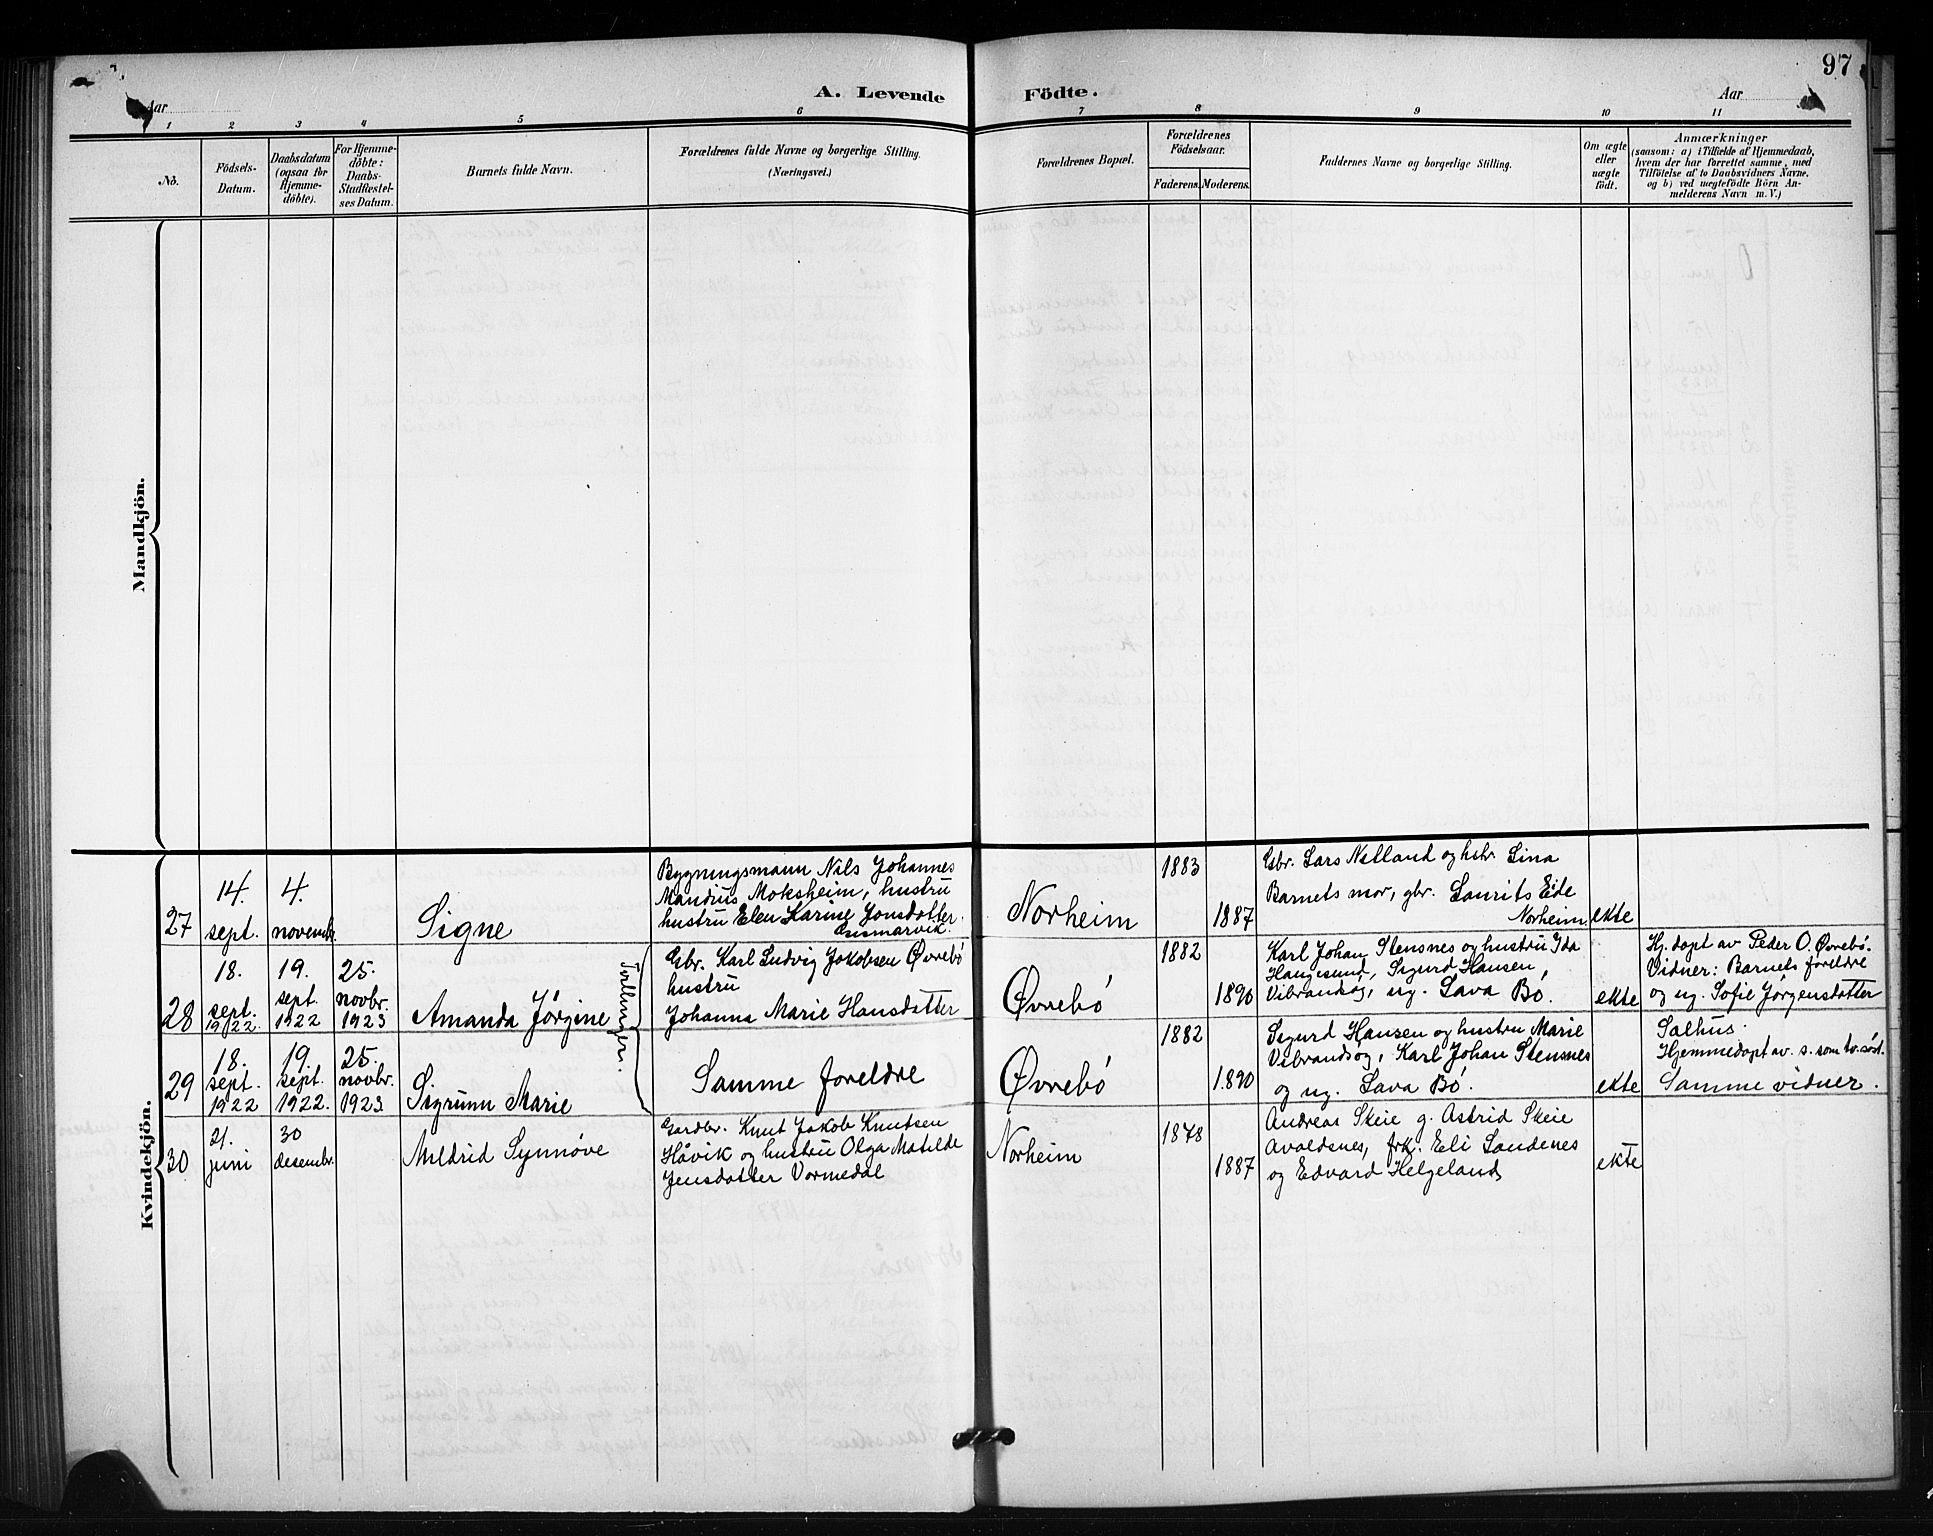 97
A. Levende Födte.
Aar
Aar
1 2 3 4 5 6 7 8 9 10 11
No.
Födsels-
Datum.
Daabsdatum
(ogsaa for
Hjemme-
döbte).
For Hjemme-
döbte:
Daabs-
Stadfæstel-
ses Datum.
Barnets fulde Navn.
Forældrenes fulde Navne og borgerlige Stilling.
(Næringsvei.)
Forældrenes Bopæl.
Forældrenes
Födselsaar.
Faderens. Moderens.
Faddernes Navne og borgerlige Stilling.
Om ægte
eller
uægte
født.
Anmærkninger
(saasom: a) i Tilfælde af Hjemmedaab,
hvem der har forrettet samme, med
Tilföielse af to Daabsvidners Navne,
og b) ved uægtefödte Börn An-
melderens Navn m. V.)
Mandkjön.
Kvindekjön.
27
14.
sept.
4.
novembr.
Signe
Bygningsmann Nils Johannes
Mandius Moksheim, hustru
hustru Elen Karine Jonsdatter
Gismarvik.
Norheim
1883
1887
Gbr. Lars Netland og hstr. Lina
Barnets mor, gbr. Laurits Eide
Norheim.
ekte
28
18.
sept.
1922
19.
sept.
1922
25.
novbr.
1923
Amanda Jörgine
Tvillinger.
Gbr. Karl Ludvig Jakobsen Øvrebö
hustru
Johanna Marie Hansdatter
Øvrebö
1882
1890
Karl Johan Stensnes og hustru Ida
Haugesund, Sigurd Hansen,
Vibrandsög, ug. Lava Bö.
ekte
Hj. döpt av Peder O. Øvrebö.
Vidner: Barnets foreldre
og ug. Sofie Jörgensdatter
Salhus.
29
18.
sept.
1922
19.
sept.
1922.
25.
novbr.
1923
Sigrunn Marie
Samme foreldre
Øvrebö
1882
1890
Sigurd Hansen og hustru Marie
Vibrandsög, Karl Johan Stensnes
og ug. Lava Bö.
ekte
Hjemmedöpt av. s. som tv.söst.
Samme vidner.
30
21.
juni
30
desembr.
Mildrid Synnöve
Gardbr. Knut Jakob Knutsen
Håvik og hustru Olga Matilde
Jensdatter Vormedal
Norheim
1878
1887
Andreas Skeie g. Astrid Skeie
Avaldsnes, frk. Eli Sandenes
og Edvard Helgeland
ekte